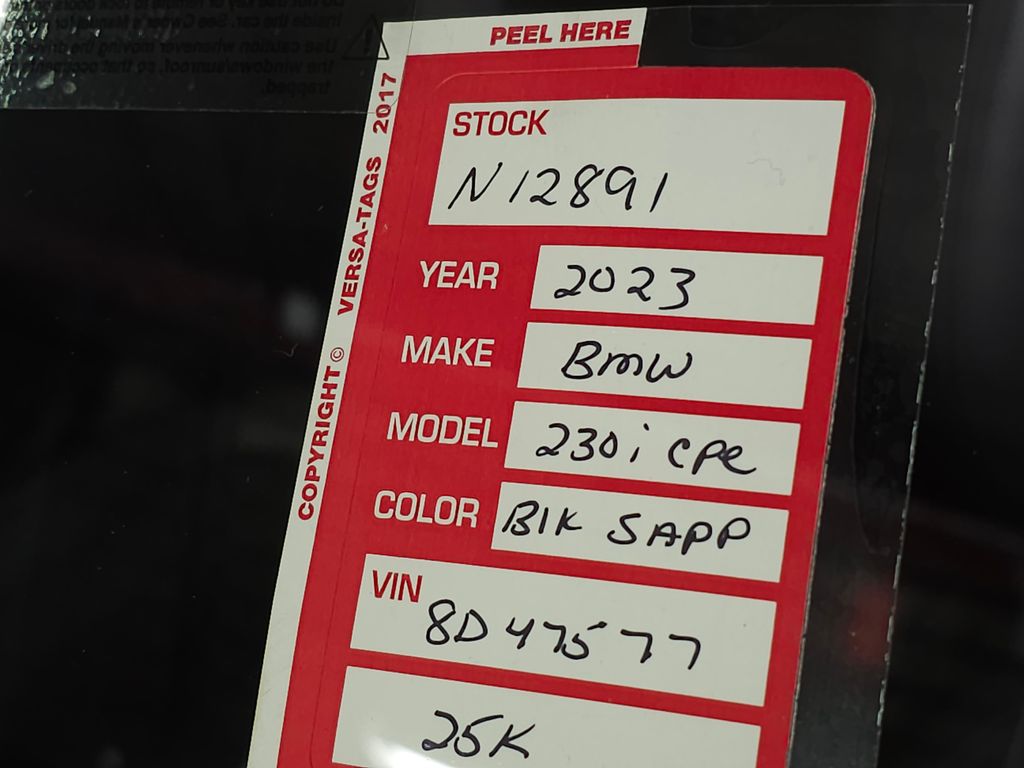 Do not use key or remote to lock doors
inside the car. See Owner's Manual for
Use caution whenever moving the
the windows/sunroof, so that occupants
trapped.
PEEL HERE
COPYRIGHT © VERSA-TAGS 2017
STOCK
N12891
YEAR 2023
MAKE BMW
MODEL 230i cpe
COLOR BlK SAPP
VIN
8D47577
25K